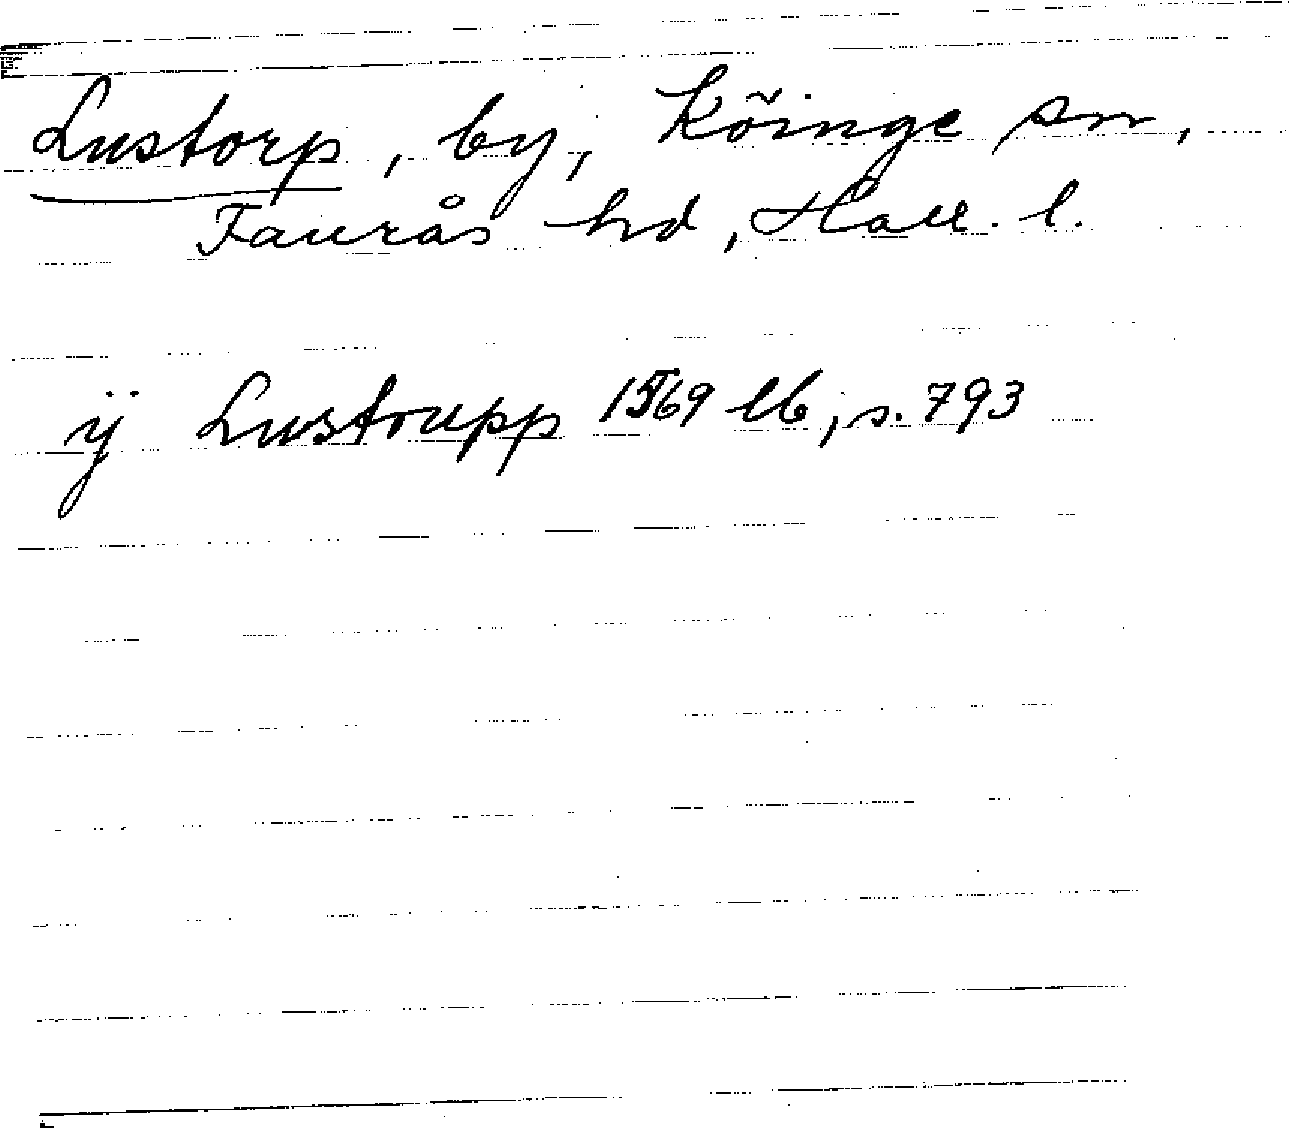 Lustorp, by, Köinge sn,
Faurås hd, Hall. l.
ÿ Lustrupp 1569 lb, s. 793